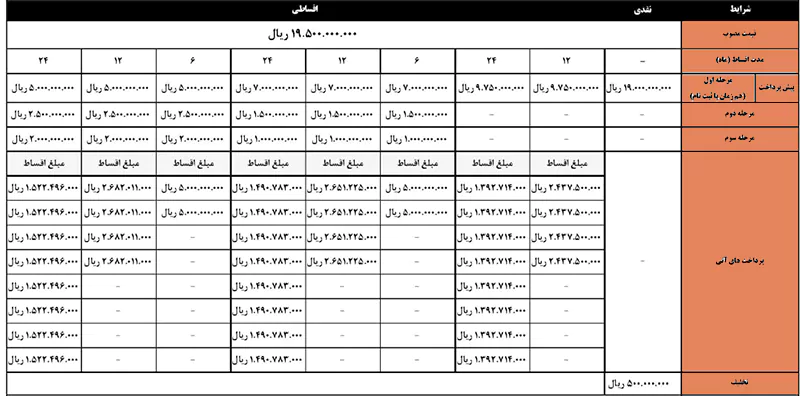 شرایط نقدی اقساطی
قیمت مصوب ۱۹.۵۰۰.۰۰۰.۰۰۰ ریال
مدت اقساط (ماه) – ۱۲ ۲۴ ۶ ۱۲ ۲۴ ۶ ۱۲ ۲۴
پیش پرداخت مرحله اول (هم زمان با ثبت نام) ۱۹.۰۰۰.۰۰۰.۰۰۰ ریال ۹.۷۵۰.۰۰۰.۰۰۰ ریال ۹.۷۵۰.۰۰۰.۰۰۰ ریال ۷.۰۰۰.۰۰۰.۰۰۰ ریال ۷.۰۰۰.۰۰۰.۰۰۰ ریال ۷.۰۰۰.۰۰۰.۰۰۰ ریال ۵.۰۰۰.۰۰۰.۰۰۰ ریال ۵.۰۰۰.۰۰۰.۰۰۰ ریال ۵.۰۰۰.۰۰۰.۰۰۰ ریال
مرحله دوم – – – ۱.۵۰۰.۰۰۰.۰۰۰ ریال ۱.۵۰۰.۰۰۰.۰۰۰ ریال ۱.۵۰۰.۰۰۰.۰۰۰ ریال ۲.۵۰۰.۰۰۰.۰۰۰ ریال ۲.۵۰۰.۰۰۰.۰۰۰ ریال ۲.۵۰۰.۰۰۰.۰۰۰ ریال
مرحله سوم – – – ۱.۰۰۰.۰۰۰.۰۰۰ ریال ۱.۰۰۰.۰۰۰.۰۰۰ ریال ۱.۰۰۰.۰۰۰.۰۰۰ ریال ۲.۰۰۰.۰۰۰.۰۰۰ ریال ۲.۰۰۰.۰۰۰.۰۰۰ ریال ۲.۰۰۰.۰۰۰.۰۰۰ ریال
مبلغ اقساط مبلغ اقساط مبلغ اقساط مبلغ اقساط مبلغ اقساط مبلغ اقساط مبلغ اقساط مبلغ اقساط
۲.۴۳۷.۵۰۰.۰۰۰ ریال ۱.۳۹۲.۷۱۴.۰۰۰ ریال ۵.۰۰۰.۰۰۰.۰۰۰ ریال ۲.۶۵۱.۲۲۵.۰۰۰ ریال ۱.۴۹۰.۷۸۳.۰۰۰ ریال ۵.۰۰۰.۰۰۰.۰۰۰ ریال ۲.۶۸۲.۰۱۱.۰۰۰ ریال ۱.۵۲۲.۴۹۶.۰۰۰ ریال
۲.۴۳۷.۵۰۰.۰۰۰ ریال ۱.۳۹۲.۷۱۴.۰۰۰ ریال ۵.۰۰۰.۰۰۰.۰۰۰ ریال ۲.۶۵۱.۲۲۵.۰۰۰ ریال ۱.۴۹۰.۷۸۳.۰۰۰ ریال ۵.۰۰۰.۰۰۰.۰۰۰ ریال ۲.۶۸۲.۰۱۱.۰۰۰ ریال ۱.۵۲۲.۴۹۶.۰۰۰ ریال
۲.۴۳۷.۵۰۰.۰۰۰ ریال ۱.۳۹۲.۷۱۴.۰۰۰ ریال – ۲.۶۵۱.۲۲۵.۰۰۰ ریال ۱.۴۹۰.۷۸۳.۰۰۰ ریال – ۲.۶۸۲.۰۱۱.۰۰۰ ریال ۱.۵۲۲.۴۹۶.۰۰۰ ریال
پرداخت های آتی – ۲.۴۳۷.۵۰۰.۰۰۰ ریال ۱.۳۹۲.۷۱۴.۰۰۰ ریال – ۲.۶۵۱.۲۲۵.۰۰۰ ریال ۱.۴۹۰.۷۸۳.۰۰۰ ریال – ۲.۶۸۲.۰۱۱.۰۰۰ ریال ۱.۵۲۲.۴۹۶.۰۰۰ ریال
– ۱.۳۹۲.۷۱۴.۰۰۰ ریال – – ۱.۴۹۰.۷۸۳.۰۰۰ ریال – – ۱.۵۲۲.۴۹۶.۰۰۰ ریال
– ۱.۳۹۲.۷۱۴.۰۰۰ ریال – – ۱.۴۹۰.۷۸۳.۰۰۰ ریال – – ۱.۵۲۲.۴۹۶.۰۰۰ ریال
– ۱.۳۹۲.۷۱۴.۰۰۰ ریال – – ۱.۴۹۰.۷۸۳.۰۰۰ ریال – – ۱.۵۲۲.۴۹۶.۰۰۰ ریال
– ۱.۳۹۲.۷۱۴.۰۰۰ ریال – – ۱.۴۹۰.۷۸۳.۰۰۰ ریال – – ۱.۵۲۲.۴۹۶.۰۰۰ ریال
تخفیف ۵۰۰.۰۰۰.۰۰۰ ریال